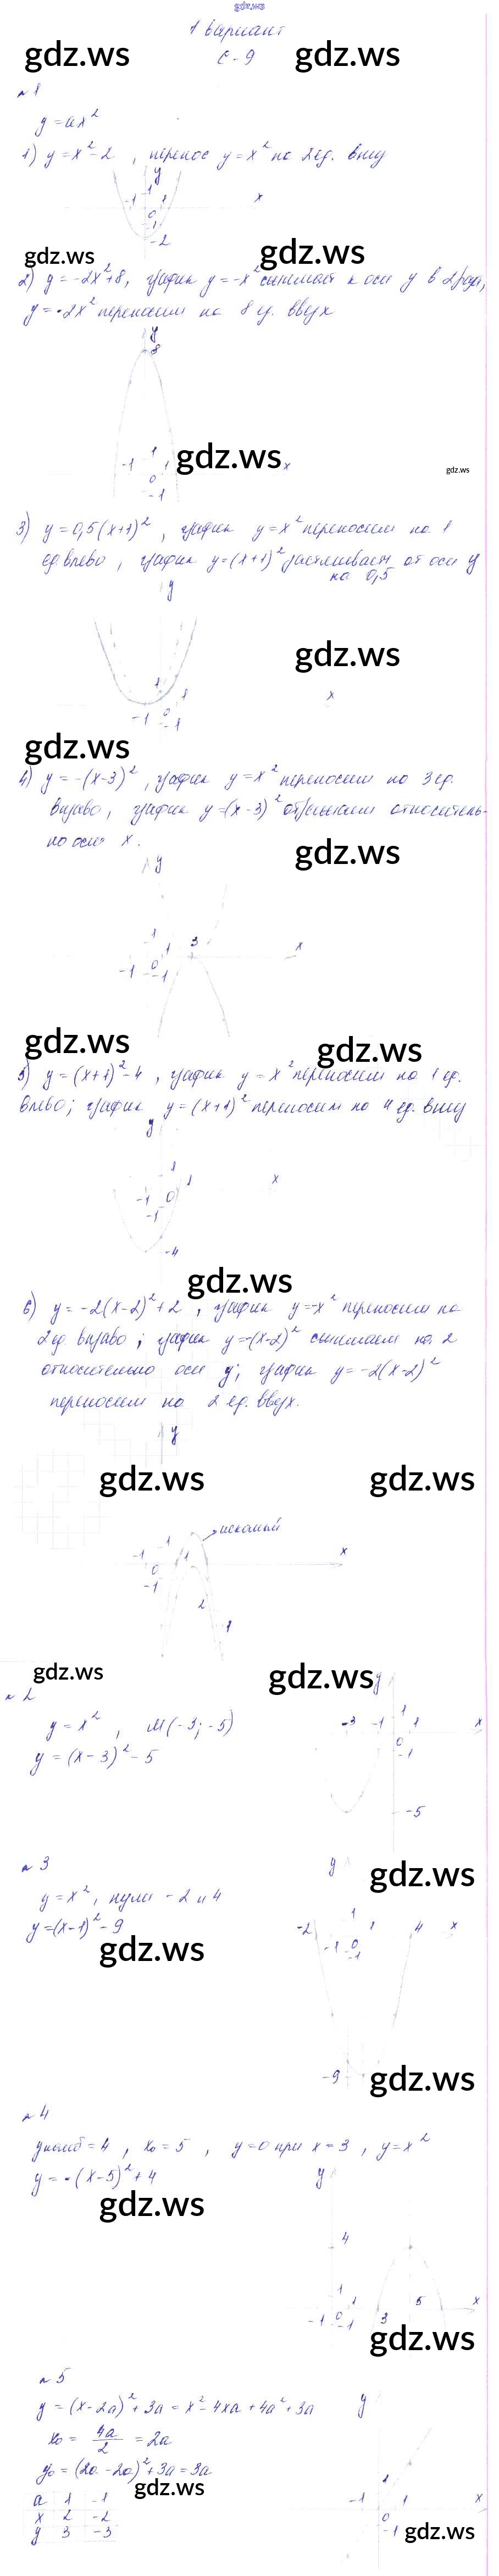 gdz.ws
1 вариант
gdz.ws gdz.ws
С-9
№1
y = ax²
1) y = x² - 2 , перенос y = x² на 2 ед. вниз
y
-1 1 1 x
0
-1
-2
gdz.ws gdz.ws
2) y = -2x² + 8, график y = -x² сжимаем к оси y в 2 раза,
y = -2x² переносим на 8 ед. вверх
y
8
1
-1 gdz.ws 1 x gdz.ws
0
-1
3) y = 0,5(x+1)² , график y = x² переносим на 1
ед. влево , график y = (x+1)² растягиваем от оси y
на 0,5
y
gdz.ws
x
1 1
-1 0 -1
gdz.ws
4) y = -(x-3)² , график y = x² переносим на 3 ед.
вправо, график y = (x-3)² отражаем относитель-
но оси x.
gdz.ws
y
1 1 3 x
-1 0 -1
gdz.ws gdz.ws
5) y = (x+1)² - 4 , график y = x² переносим на 1 ед.
влево; график y = (x+1)² переносим на 4 ед. вниз
y
1 1 x
-1 0
-1
-4
gdz.ws
6) y = -2(x-2)² + 2 , график y = -x² переносим на
2 ед. вправо ; график y = -(x-2)² сжимаем на 2
относительно оси y; график y = -2(x-2)²
переносим на 2 ед. вверх.
y
gdz.ws gdz.ws
искомый
-1 1 1 x
0
-1
2
gdz.ws gdz.ws
№2
y
y = x² , M(-3; -5)
-3 -1 1 1 x
0
-1
y = (x-3)² - 5
-5
№3
y gdz.ws
y = x², нули -2 и 4
y = (x-1)² - 9
-2 1 1 4 x
-1 0
-1
gdz.ws
-9 gdz.ws
№4
yнаиб = 4 , x₀ = 5 , y = 0 при x = 3 , y = x²
y = -(x-5)² + 4
y
gdz.ws
4
1 1 5 x
-1 0 -1 3
gdz.ws
№5
y = (x-2a)² + 3a = x² - 4xa + 4a² + 3a
y
x₀ = 4a/2 = 2a
y₀ = (2a - 2a)² + 3a = 3a
gdz.ws
a 1 -1
x 2 -2
y 3 -3
1
-1 1 x
0
-1 gdz.ws